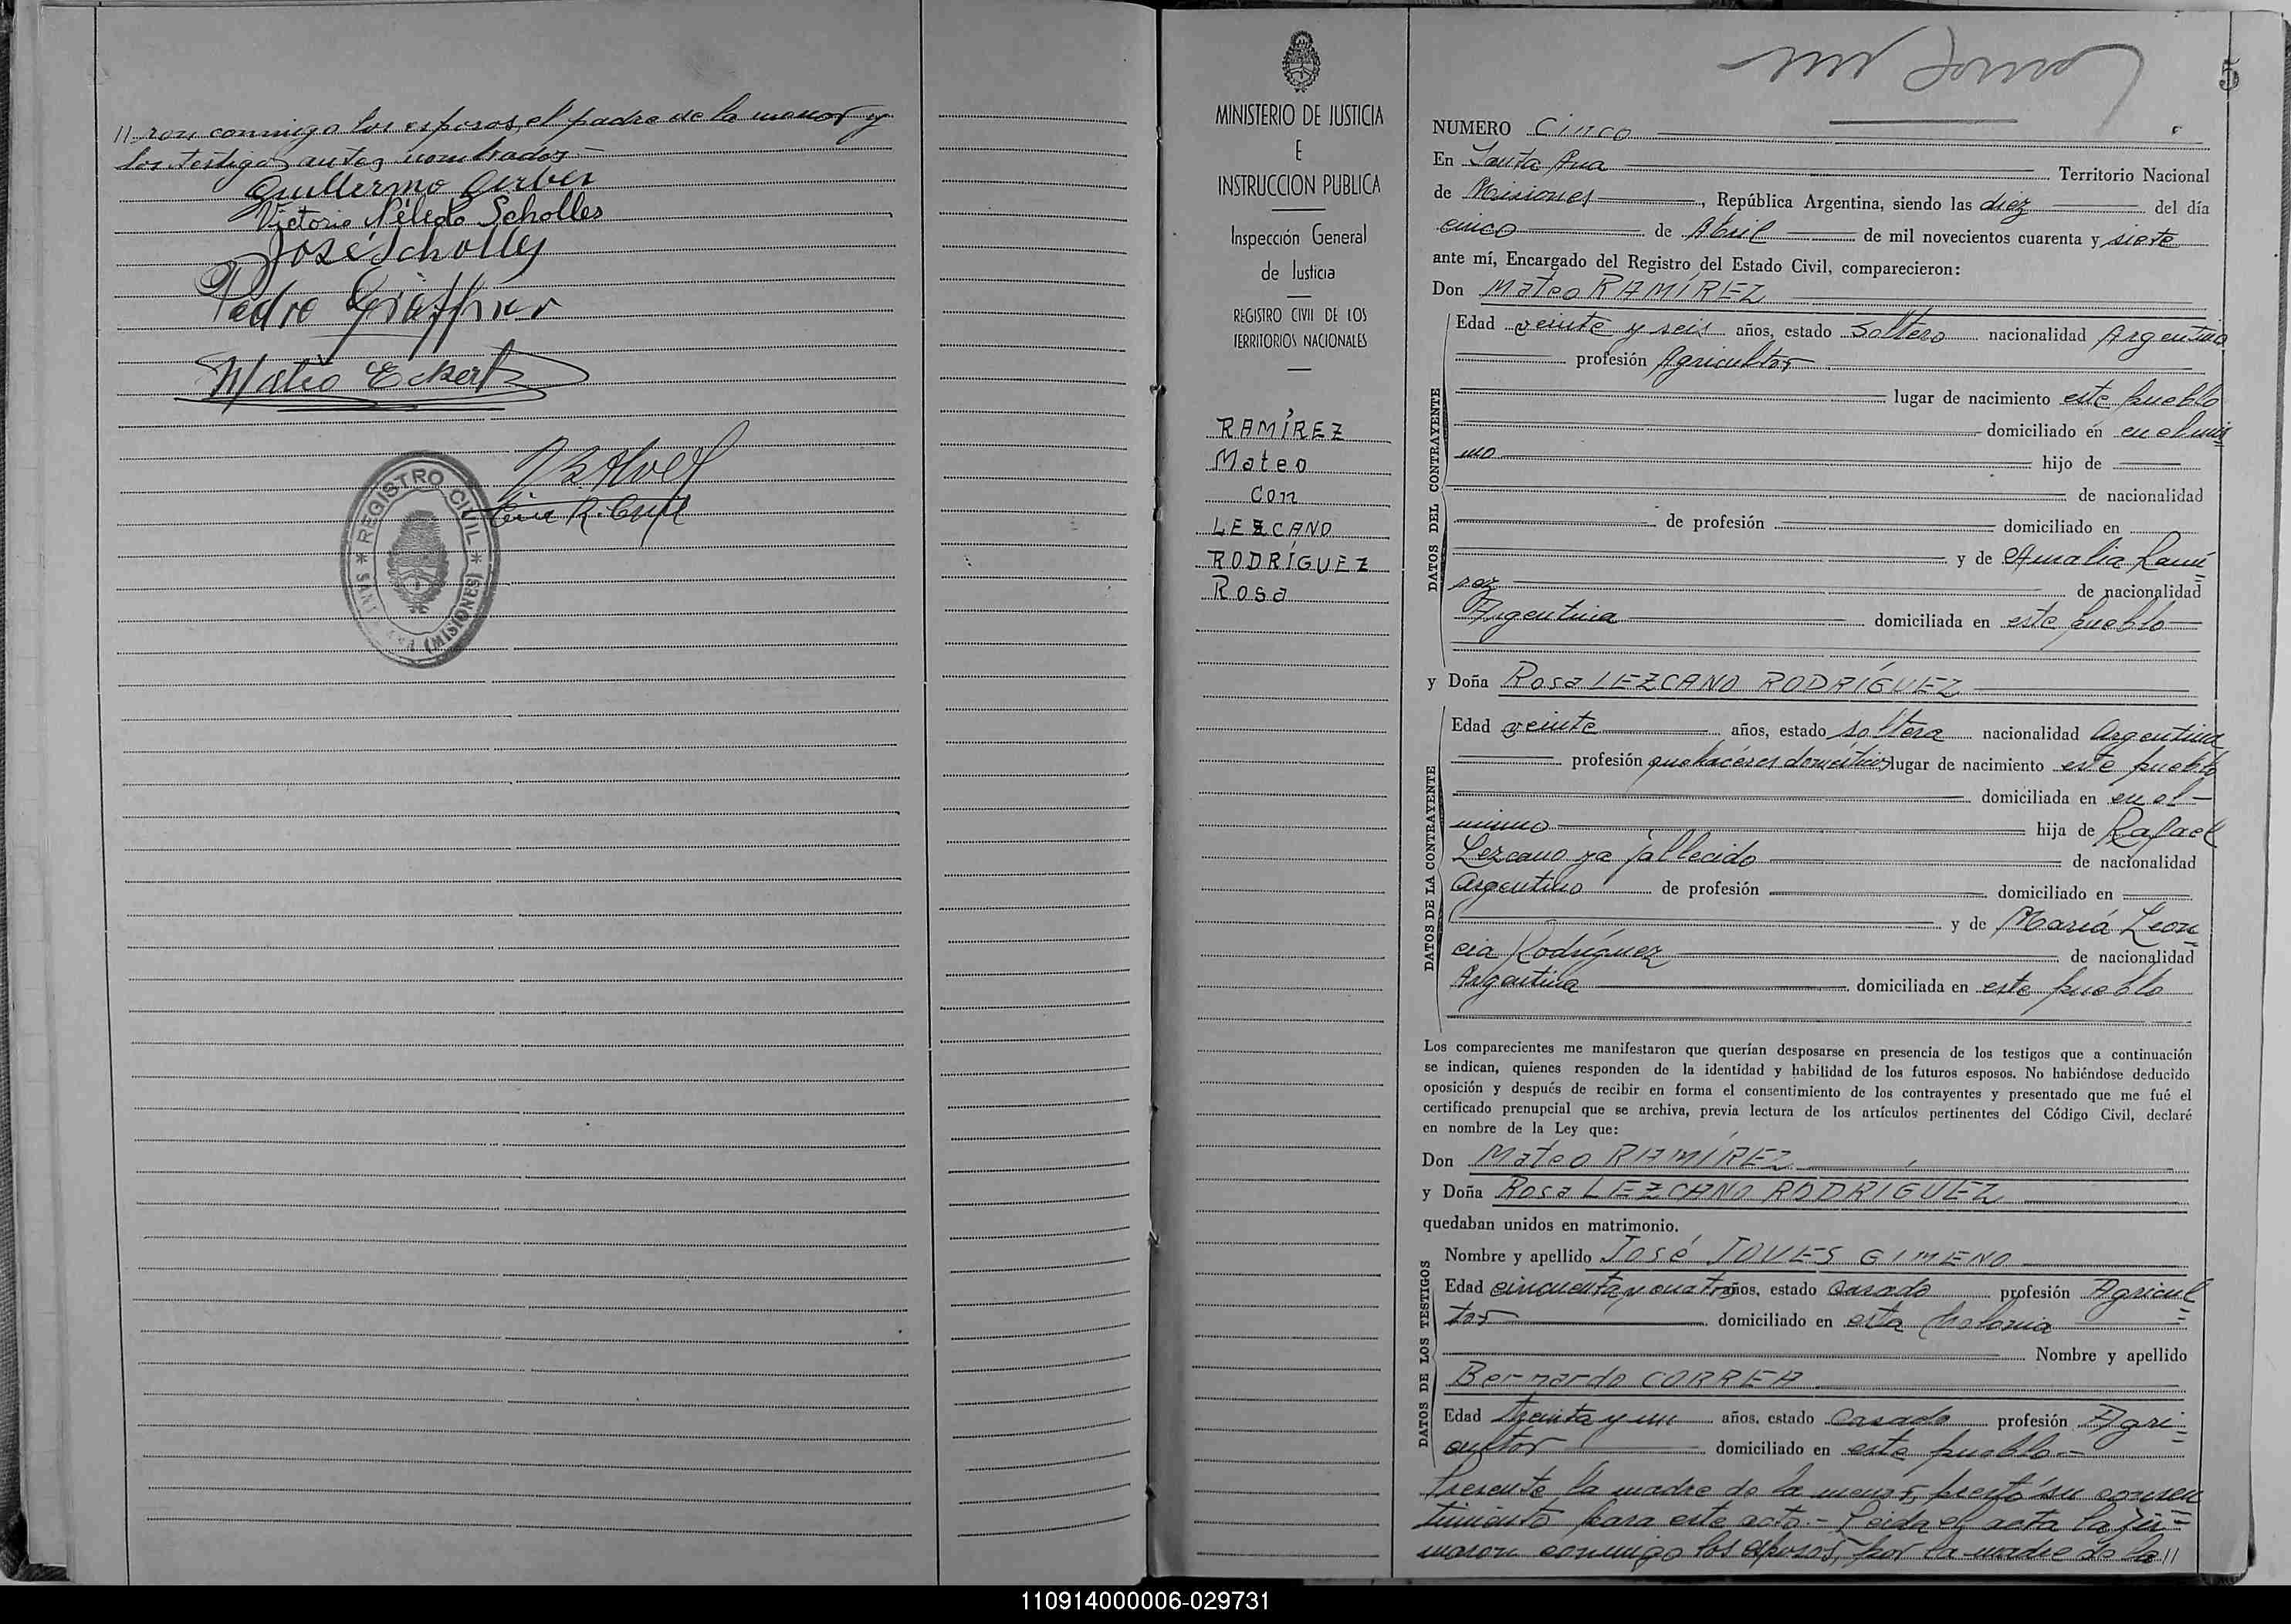 //ron conmigo los esposos, el padre de la menor y
los testigos antes nombrados -
Guillermo Gerber
Victoria Nélida Scholles
José Scholles
Pedro
Mateo Eckert
REGISTRO CIVIL
SANTA ANA (MISIONES)
MINISTERIO DE JUSTICIA
E
INSTRUCCION PUBLICA
Inspección General
de Justicia
REGISTRO CIVIL DE LOS
TERRITORIOS NACIONALES
RAMÍREZ
Mateo
con
LEZCANO
RODRÍGUEZ
Rosa
5
NUMERO Cinco
En Santa Ana Territorio Nacional
de Misiones, República Argentina, siendo las diez del día
cinco de Abril de mil novecientos cuarenta y siete
ante mí, Encargado del Registro del Estado Civil, comparecieron:
Don Mateo RAMÍREZ
DATOS DEL CONTRAYENTE
Edad veinte y seis años, estado soltero nacionalidad Argentina
profesión Agricultor
lugar de nacimiento este pueblo
domiciliado en en el mis
mo hijo de
de nacionalidad
de profesión domiciliado en
y de Amalia Ramí
rez de nacionalidad
Argentina domiciliada en este pueblo
y Doña Rosa LEZCANO RODRÍGUEZ
DATOS DE LA CONTRAYENTE
Edad veinte años, estado soltera nacionalidad Argentina
profesión quehaceres domésticos lugar de nacimiento este pueblo
domiciliada en en el
mismo hija de Rafael
Lezcano ya fallecido de nacionalidad
Argentino de profesión domiciliado en
y de María Leon
cia Rodríguez de nacionalidad
Argentina domiciliada en este pueblo
Los comparecientes me manifestaron que querían desposarse en presencia de los testigos que a continuación
se indican, quienes responden de la identidad y habilidad de los futuros esposos. No habiéndose deducido
oposición y después de recibir en forma el consentimiento de los contrayentes y presentado que me fué el
certificado prenupcial que se archiva, previa lectura de los artículos pertinentes del Código Civil, declaré
en nombre de la Ley que:
Don Mateo RAMÍREZ
y Doña Rosa LEZCANO RODRÍGUEZ
quedaban unidos en matrimonio.
DATOS DE LOS TESTIGOS
Nombre y apellido José JOVES GIMENO
Edad cincuenta y cuatro años, estado casado profesión Agricul
tor domiciliado en esta Colonia
Nombre y apellido
Bernardo CORREA
Edad treinta y un años, estado casado profesión Agri
cultor domiciliado en este pueblo -
Presente la madre de la menor, prestó su consen
timiento para este acto.- Leída el acta la fir
maron conmigo los esposos, por la madre de la//
110914000006-029731